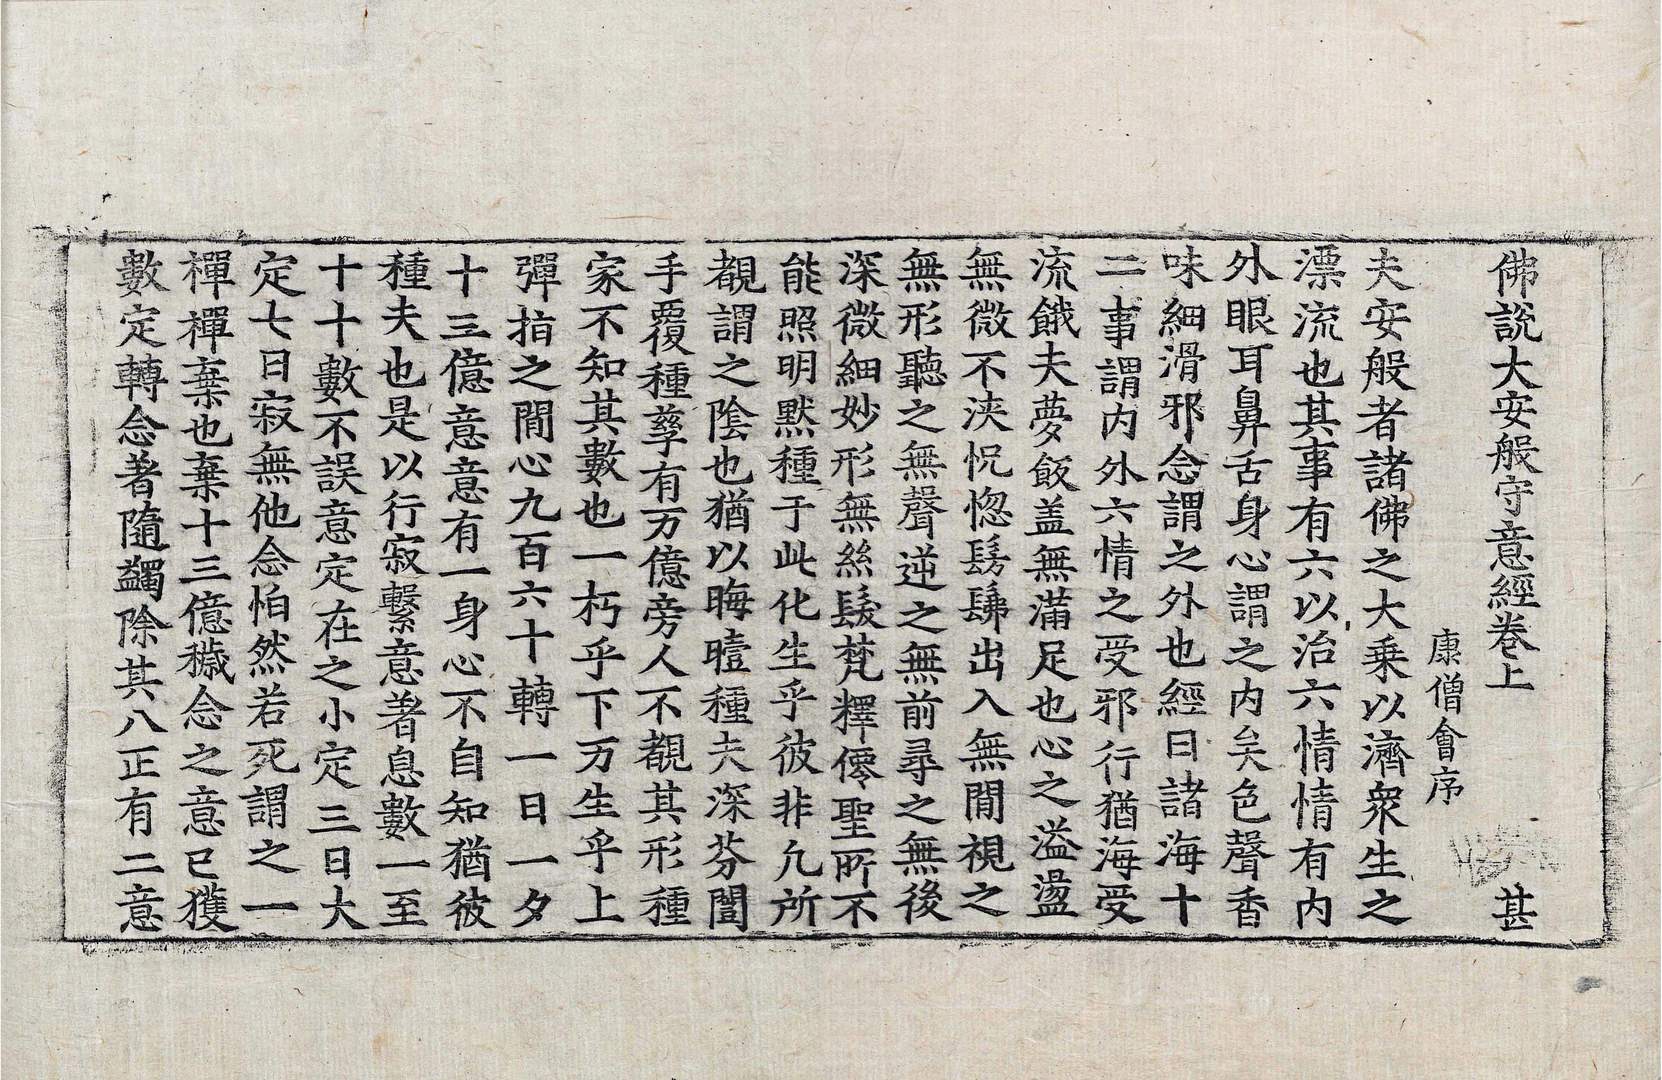 佛説大安般守意經卷上 甚
康僧會序
夫安般者諸佛之大乗以濟衆生之
漂流也其事有六以治六情情有内
外眼耳鼻舌身心謂之内矣色聲香
味細滑邪念謂之外也經曰諸海十
二事謂内外六情之受邪行猶海受
流餓夫夢飯盖無滿足也心之溢盪
無微不浹怳惚髣髴出入無閒視之
無形聽之無聲逆之無前尋之無後
深微細妙形無絲髮梵釋僊聖所不
能照明黙種于此化生乎彼非凢所
覩謂之陰也猶以晦曀種夫深芬闓
手覆種孳有万億旁人不覩其形種
家不知其數也一朽乎下万生乎上
彈指之閒心九百六十轉一日一夕
十三億意意有一身心不自知猶彼
種夫也是以行寂繫意著息數一至
十十數不誤意定在之小定三日大
定七日寂無他念怕然若死謂之一
禪禪棄也棄十三億穢念之意已獲
數定轉念著隨蠲除其八正有二意